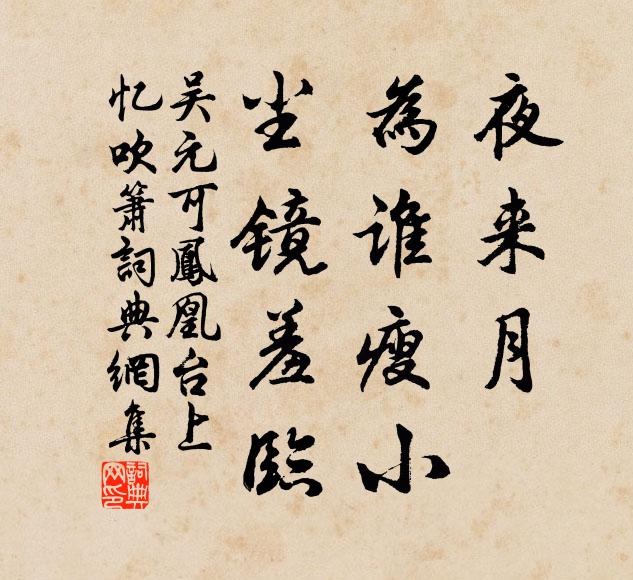 夜来月
為谁瘦小
尘镜羞临
吴元可鳳凰台上
忆吹箫詞典網集
詞典
网印